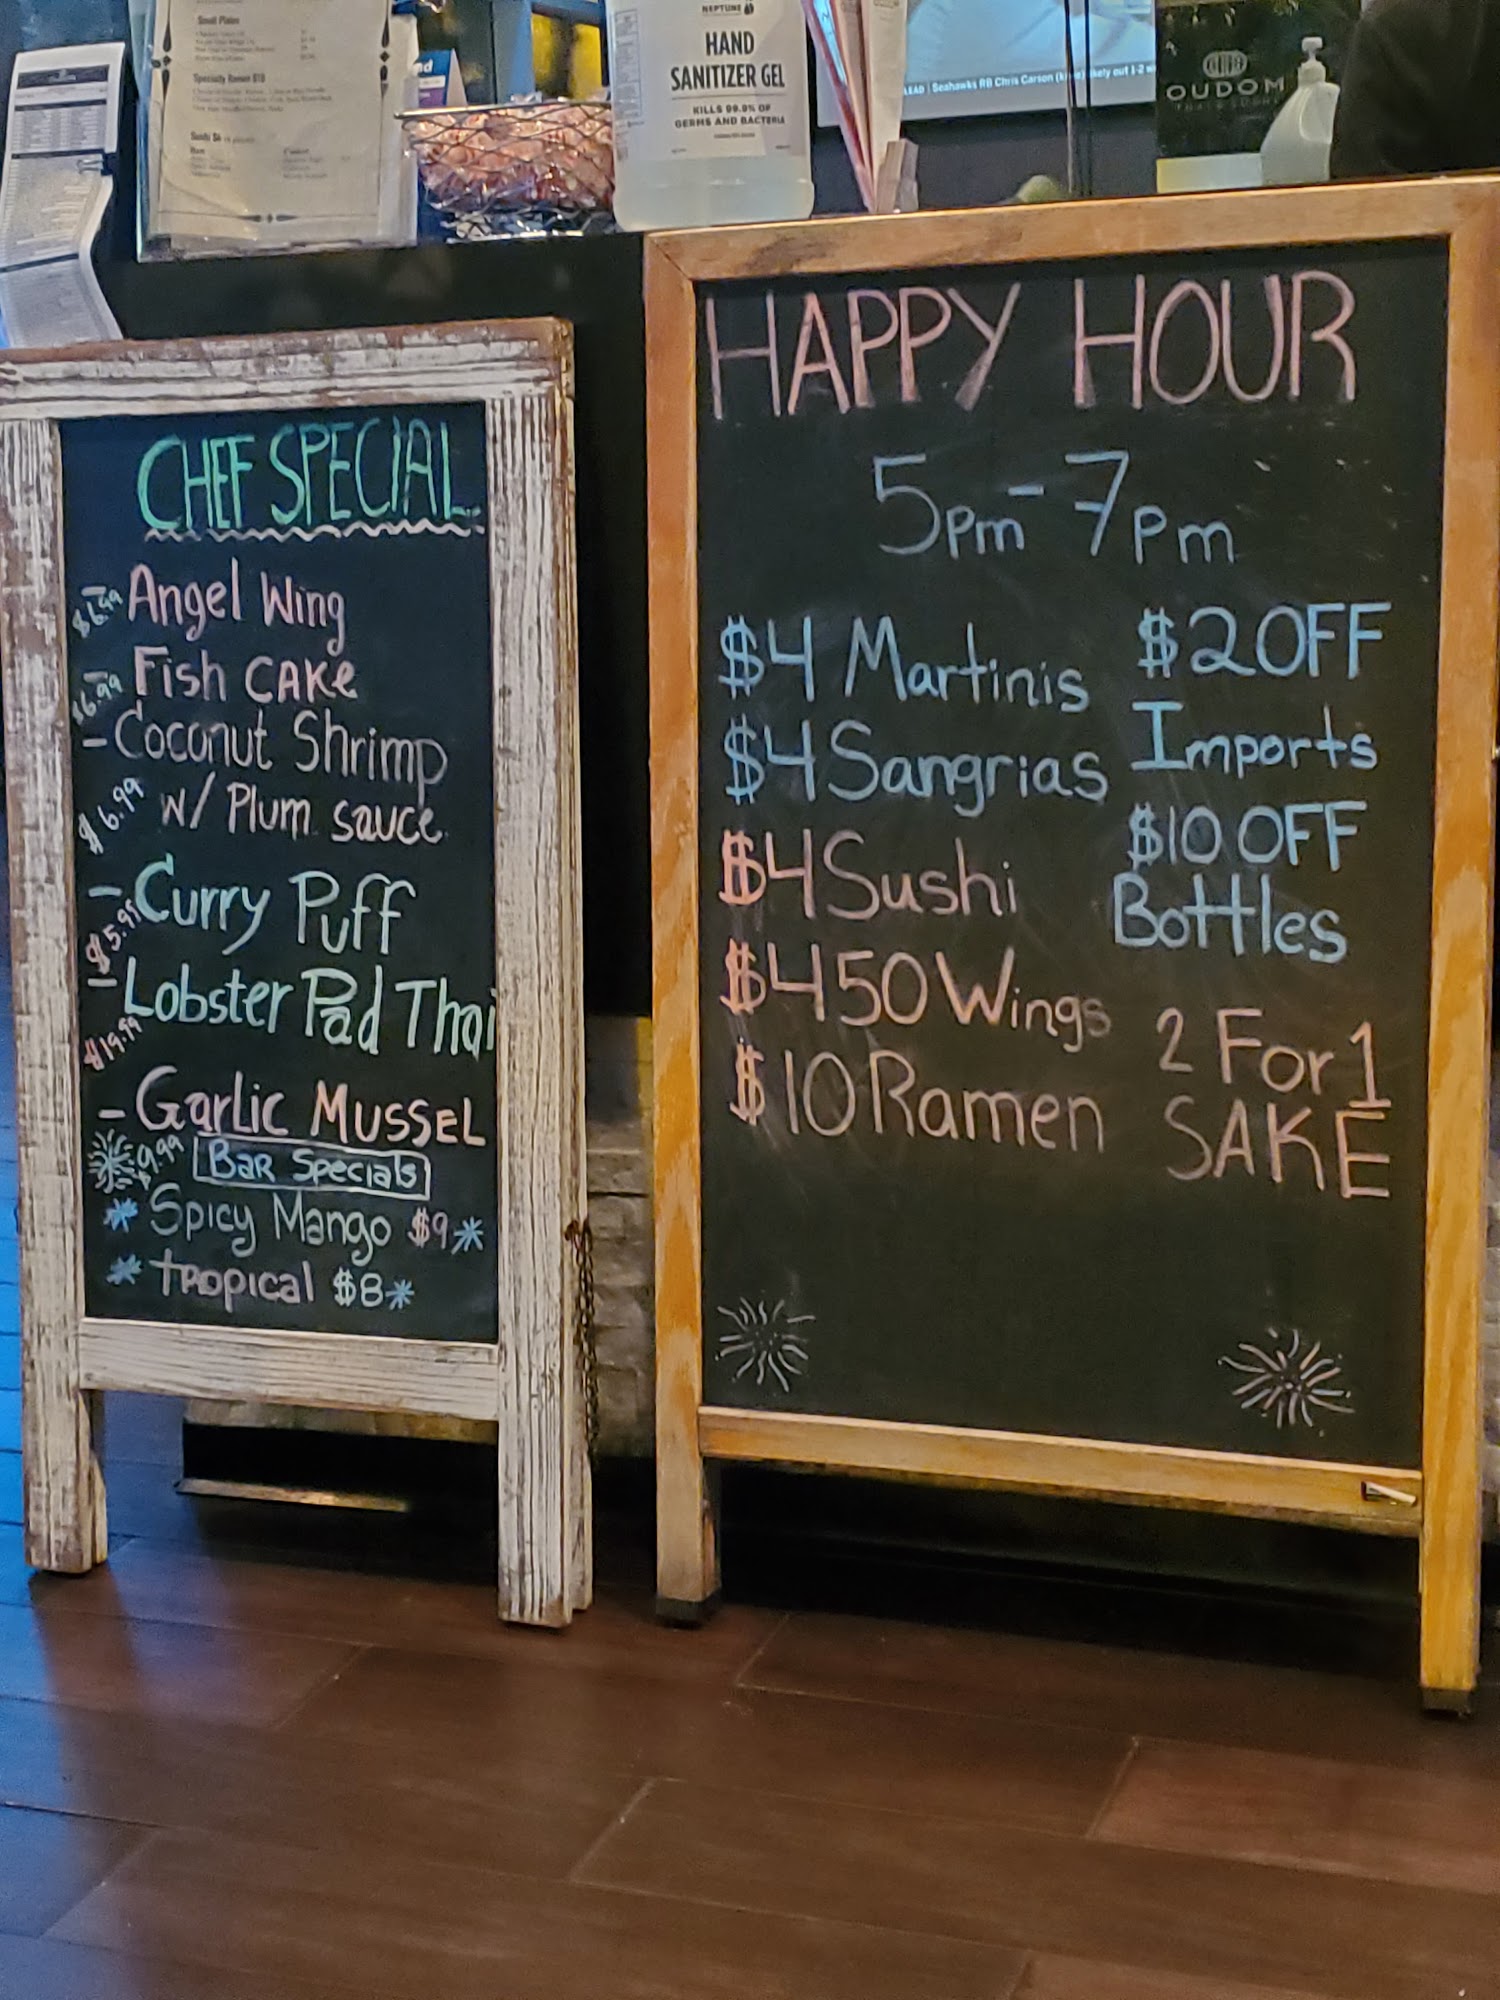 Small Plates
Specialty Ramen $10
NEPTUNE
HAND
SANITIZER GEL
KILLS 99.9% OF
GERMS AND BACTERIA
LEAD | Seahawks RB Chris Carson (knee) likely out 1-2 w
OUDOM
THAI & SUSHI
CHEF SPECIAL
- Angel Wing
$6.99
- Fish CAKe
$6.99
- Coconut Shrimp
$6.99 w/ Plum sauce
- Curry Puff
$5.95
- Lobster Pad Thai
$19.99
- GarLic MUSSEL
$9.99 BAR Specials
* Spicy Mango $9 *
* tropical $8 *
HAPPY HOUR
5pm - 7pm
$4 Martinis
$4 Sangrias
$4 Sushi
$4 50 Wings
$10 Ramen
$2 OFF
Imports
$10 OFF
Bottles
2 For 1
SAKE